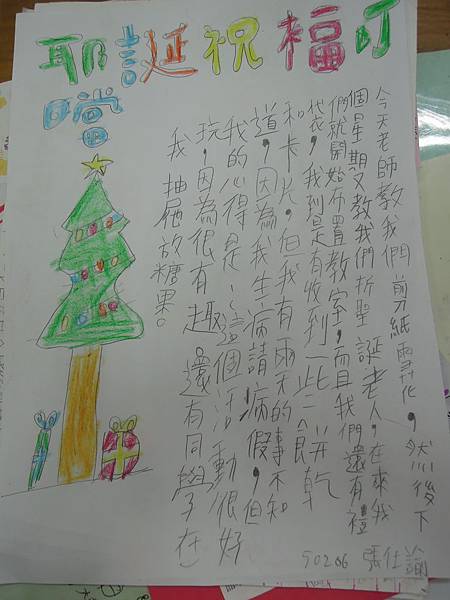 耶誕祝福叮
噹
今天老師教我們剪紙雪花，然後下
個星期又教我們折聖誕老人，在來我
們就開始布置教室，而且我們還有禮
袋，我到是有收到一些餅乾
和卡片，但我有兩天的事不知
道，因為我生病請病假，但
我的心得是、這個活動很好
玩，因為很有趣還有同學在
我抽屜放糖果。
50206 張仕諭